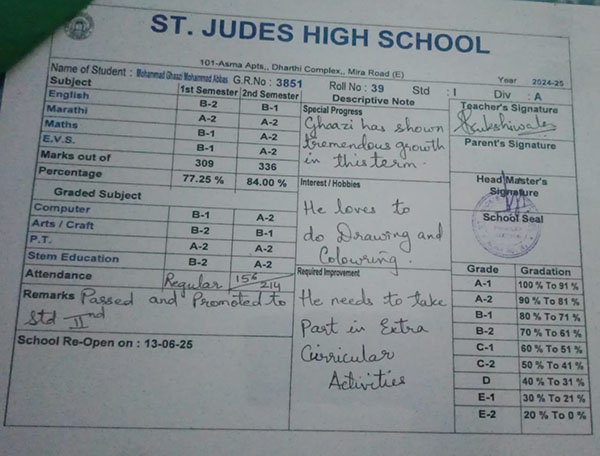 ST. JUDES HIGH SCHOOL
101-Asma Apts,. Dharthi Complex,. Mira Road (E)
Name of Student : Mohammad Ghaazi Mohammad Abbas G.R.No : 3851 Roll No : 39 Std : I Div : A Year 2024-25
Subject 1st Semester 2nd Semester
English B-2 B-1
Marathi A-2 A-2
Maths B-1 A-2
E.V.S. B-1 A-2
Marks out of 309 336
Percentage 77.25 % 84.00 %
Graded Subject
Computer B-1 A-2
Arts / Craft B-2 B-1
P.T. A-2 A-2
Stem Education B-2 A-2
Attendance Regular 156/214
Remarks Passed and Promoted to
Std IInd
School Re-Open on : 13-06-25
Descriptive Note
Special Progress
Ghaazi has shown
tremendous growth
in this term.
Interest / Hobbies
He loves to
do Drawing and
Colouring.
Required Improvement
He needs to take
Part in Extra
Curricular
Activities
Teacher's Signature
Parent's Signature
Head Master's
Signature
School Seal
Grade Gradation
A-1 100 % To 91 %
A-2 90 % To 81 %
B-1 80 % To 71 %
B-2 70 % To 61 %
C-1 60 % To 51 %
C-2 50 % To 41 %
D 40 % To 31 %
E-1 30 % To 21 %
E-2 20 % To 0 %